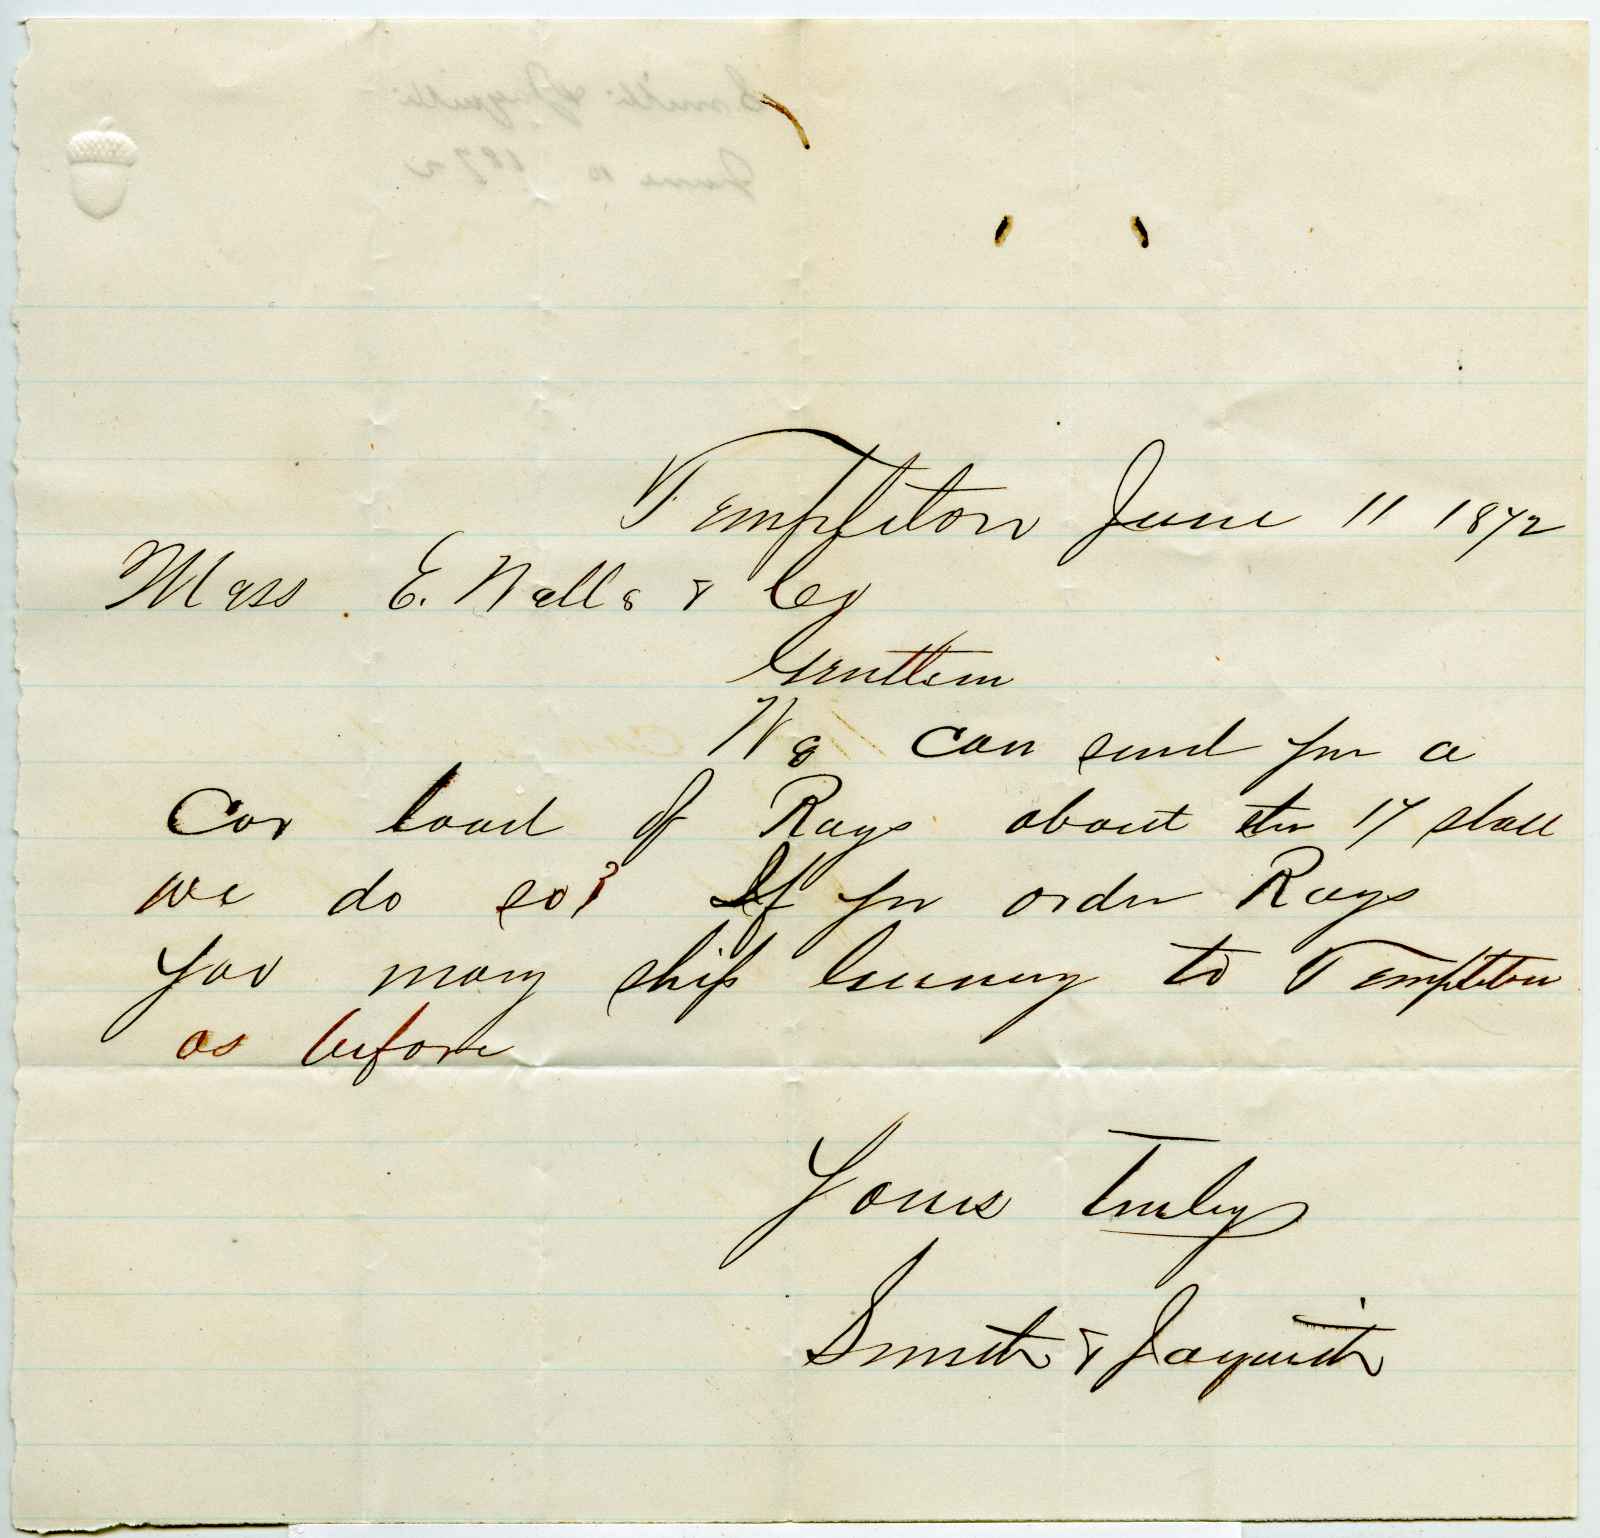 Templeton June 11 1872
Mess. E. Walls & Co
Gentlem
We can send you a
Car load of Rags about the 17 shall
we do so? If you order Rags
You may ship to Templeton
as before
Yours Truly
Smith & Jaquith